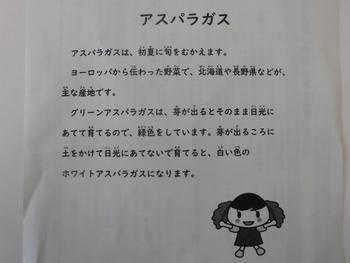 アスパラガス
アスパラガスは、初夏に旬をむかえます。
ヨーロッパから伝わった野菜で、北海道や長野県などが、
主な産地です。
グリーンアスパラガスは、芽が出るとそのまま日光に
あてて育てるので、緑色をしています。芽が出るころに
土をかけて日光にあてないで育てると、白い色の
ホワイトアスパラガスになります。